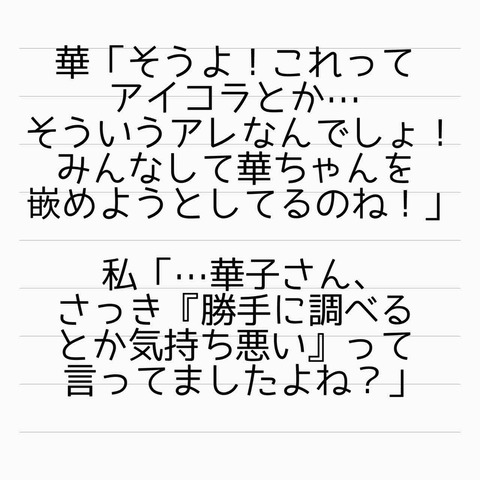 華「そうよ！これって
アイコラとか…
そういうアレなんでしょ！
みんなして華ちゃんを
嵌めようとしてるのね！」
私「…華子さん、
さっき『勝手に調べる
とか気持ち悪い』って
言ってましたよね？」